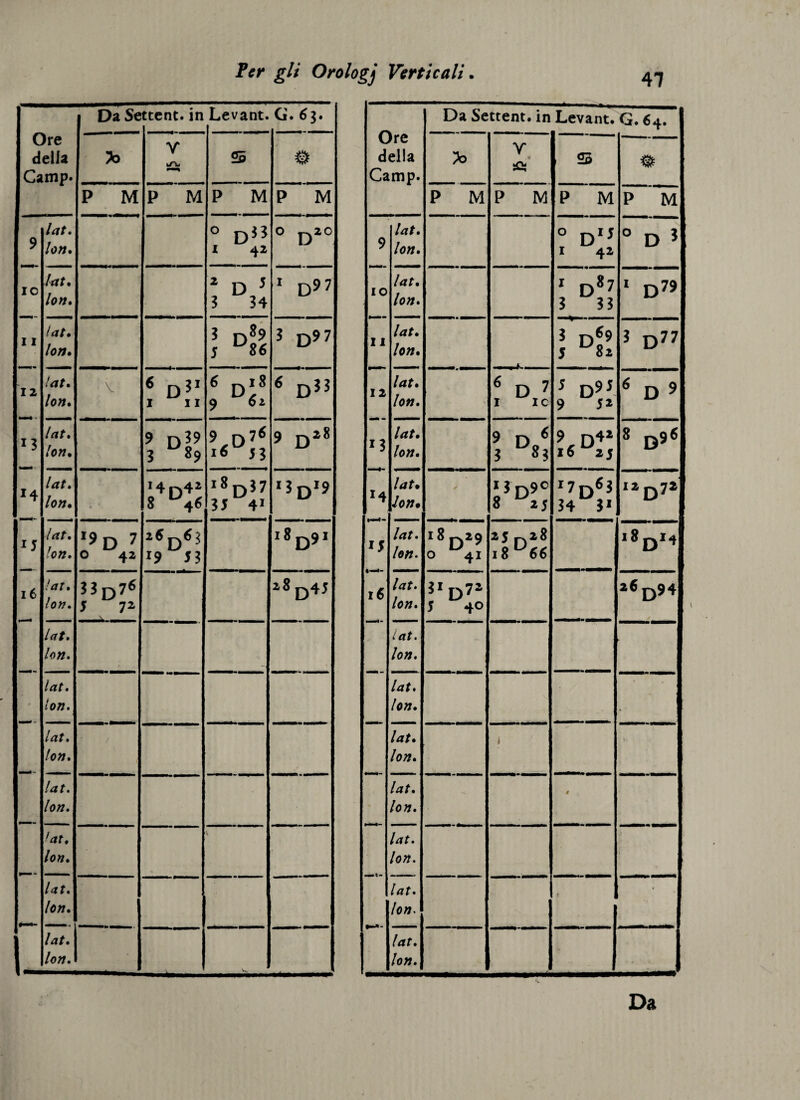 Per gli Orologj Verticali.
47
Da Settent. in Levant. G. 63.
Ore della Camp. | ♑ | ♈ ♎ | ♋ | ☼
P M | P M | P M | P M
9 lat. | | | 0 D 33 | 0 D 20
lon. | | | 1 42 |
10 lat. | | | 2 D 5 | 1 D 97
lon. | | | 3 34 |
11 lat. | | | 3 D 89 | 3 D 97
lon. | | | 5 86 |
12 lat. | | 6 D 31 | 6 D 18 | 6 D 33
lon. | | 1 11 | 9 62 |
13 lat. | | 9 D 39 | 9 D 76 | 9 D 28
lon. | | 3 89 | 16 53 |
14 lat. | | 14 D 42 | 18 D 37 | 13 D 19
lon. | | 8 46 | 35 41 |
15 lat. | 19 D 7 | 26 D 63 | | 18 D 91
lon. | 0 42 | 19 53 | |
16 lat. | 33 D 76 | | | 28 D 45
lon. | 5 72 | | |
lat.
lon.
lat.
lon.
lat.
lon.
lat.
lon.
lat.
lon.
lat.
lon.
lat.
lon.
Da Settent. in Levant. G. 64.
Ore della Camp. | ♑ | ♈ ♎ | ♋ | ☼
P M | P M | P M | P M
9 lat. | | | 0 D 15 | 0 D 3
lon. | | | 1 42 |
10 lat. | | | 1 D 87 | 1 D 79
lon. | | | 3 33 |
11 lat. | | | 3 D 69 | 3 D 77
lon. | | | 5 82 |
12 lat. | | 6 D 7 | 5 D 95 | 6 D 9
lon. | | 1 10 | 9 52 |
13 lat. | | 9 D 6 | 9 D 42 | 8 D 96
lon. | | 3 83 | 16 25 |
14 lat. | | 13 D 90 | 17 D 63 | 12 D 72
lon. | | 8 25 | 34 31 |
15 lat. | 18 D 29 | 25 D 28 | | 18 D 14
lon. | 0 41 | 18 66 | |
16 lat. | 31 D 72 | | | 26 D 94
lon. | 5 40 | | |
lat.
lon.
lat.
lon.
lat.
lon.
lat.
lon.
lat.
lon.
lat.
lon.
lat.
lon.
Da